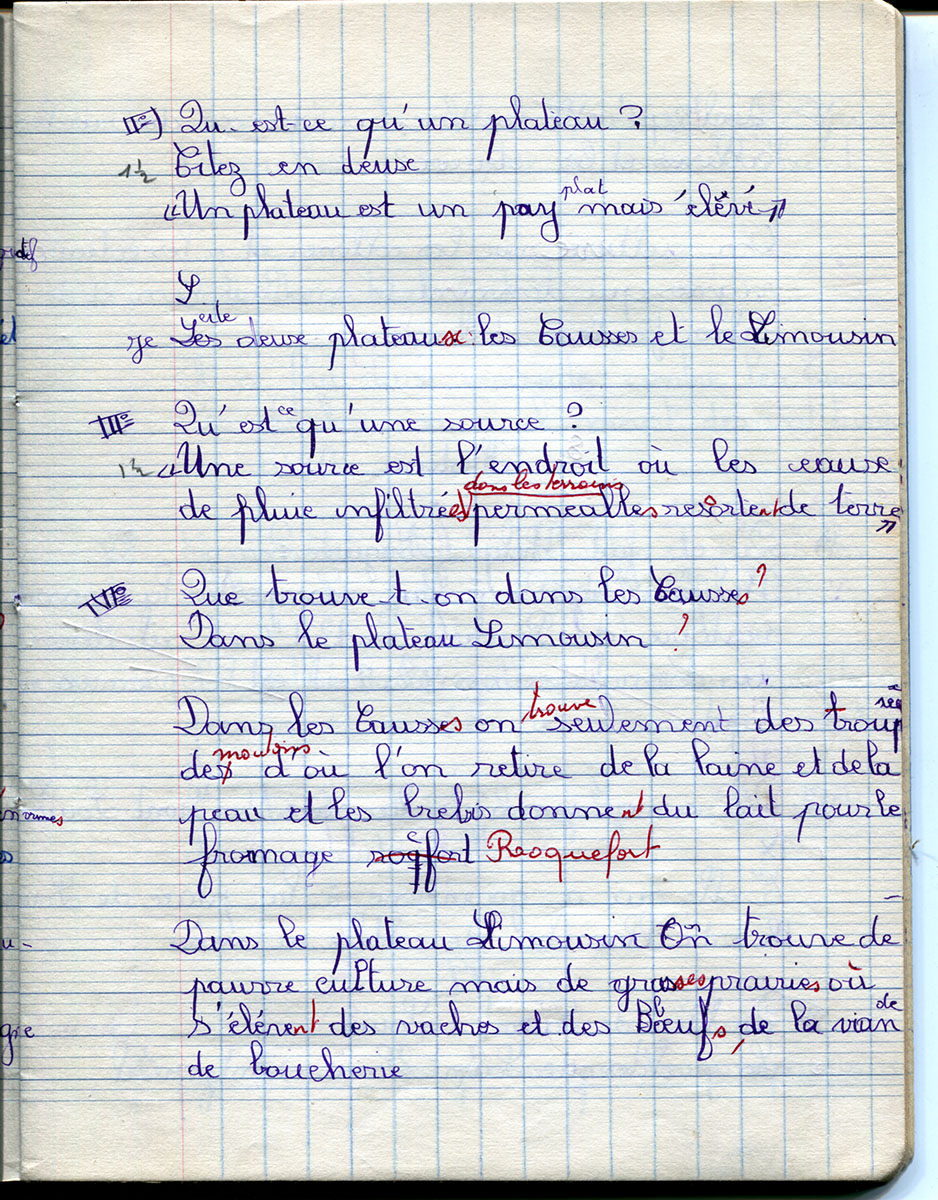 II°) Qu-est-ce qu'un plateau ?
1½ Citez en deuse
«Un plateau est un pay plat mais élévé»
S
je Les cite deux plateaux: les Causses et le Limousin
III° Qu'est ce qu'une source ?
1½ «Une source est l'endroit où les eause
dans les terrains
de pluie infiltrées permeables resortent de terre»
IV° Que trouve-t-on dans les Causses ?
Dans le plateau Limousin ?
Dans les Causses on trouve seulement des troup
des moutons d'où l'on retire de la laine et de la
peau et les brebis donnent du lait pour le
fromage roqfort Rocquefort
Dans le plateau Limousin On trouve de
pauvre culture mais de grasses prairies où
s'élévent des vaches et des Boeufs, de la vian de
de boucherie